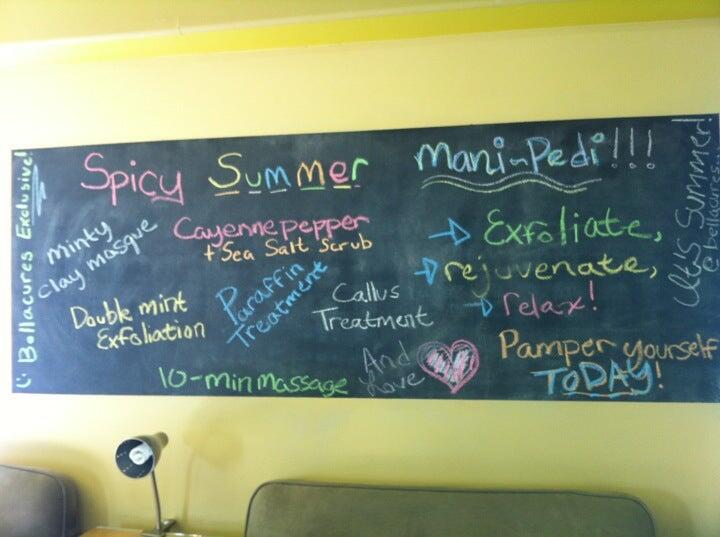 Bellacures Exclusive!
Spicy Summer Mani-Pedi!!!
minty
clay masque
Cayenne pepper
+ Sea Salt Scrub
Double mint
Exfoliation
Paraffin
Treatment
Callus
Treatment
10-min massage
And
Love
Exfoliate,
rejuvenate,
relax!
Pamper yourself
TODAY!
It's Summer!
@bellacures